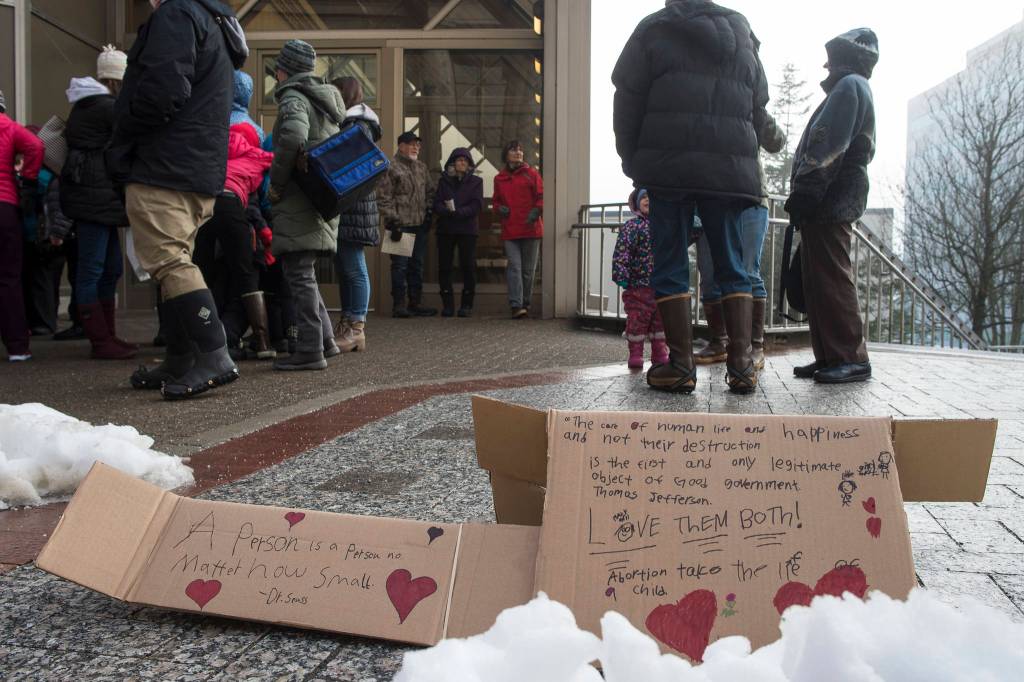 A Person is a Person no
Matter how Small.
-Dr. Seuss
"The care of human life and happiness
and not their destruction
is the first and only legitimate
object of Good government
Thomas Jefferson.
LOVE THEM BOTH!
Abortion take the life
a child.